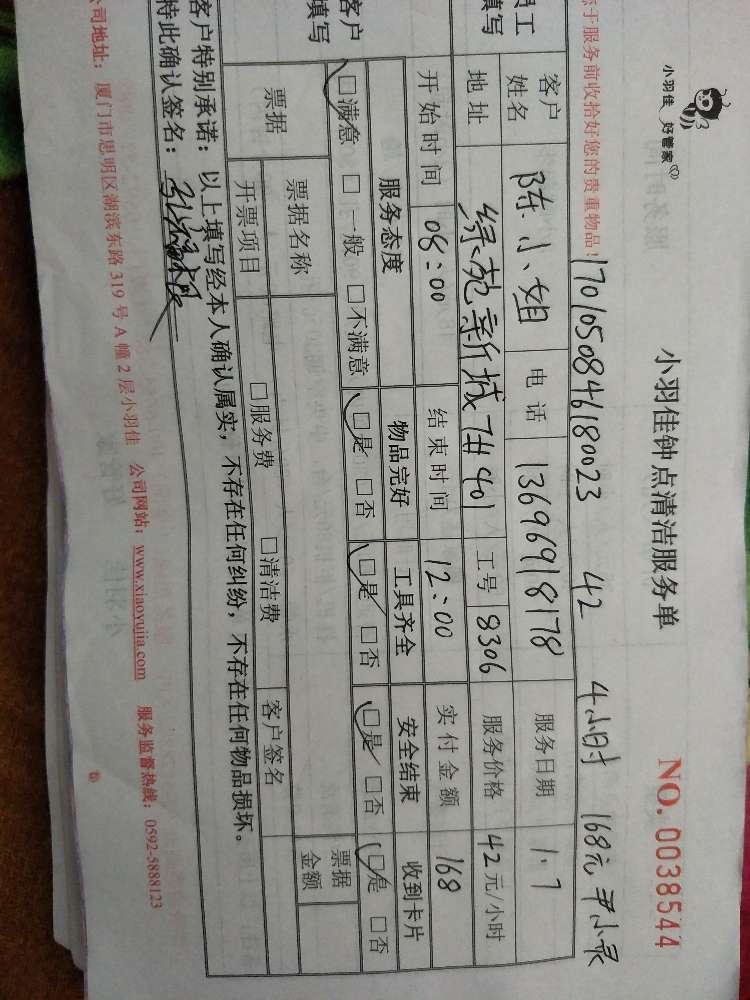 小羽佳 好管家
小羽佳钟点清洁服务单
NO. 0038544
于服务前收拾好您的贵重物品！
1701050846180023 42 4小时 168元 尹小灵
员工
填写
客户姓名 陈小姐 电话 13696918178 服务日期 1.7
地址 绿苑新城7#401 工号 8306 服务价格 42元/小时
开始时间 08:00 结束时间 12:00 实付金额 168
客户
填写
服务态度 物品完好 工具齐全 安全结束 收到卡片
☑满意 □一般 □不满意 ☑是 □否 ☑是 □否 ☑是 □否 ☑是 □否
票据 票据名称 票据金额
开票项目 □服务费 □清洁费 客户签名
客户特别承诺：以上填写经本人确认属实，不存在任何纠纷，不存在任何物品损坏。
特此确认签名：
公司地址：厦门市思明区湖滨东路319号A幢2层小羽佳 公司网站：www.xiaoyujia.com 服务监督热线：0592-5888123